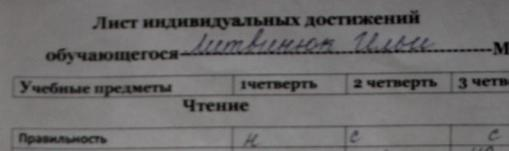 Лист индивидуальных достижений
обучающегося Литвинюк Ильи М
Учебные предметы 1четверть 2 четверть 3 четв
Чтение
Правильность н с с